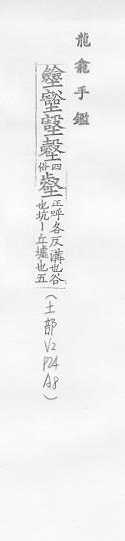 龍龕手鑑
四俗壑正呼各反溝也谷
也坑丨丘墟也五
(土部V2 P24 A8)